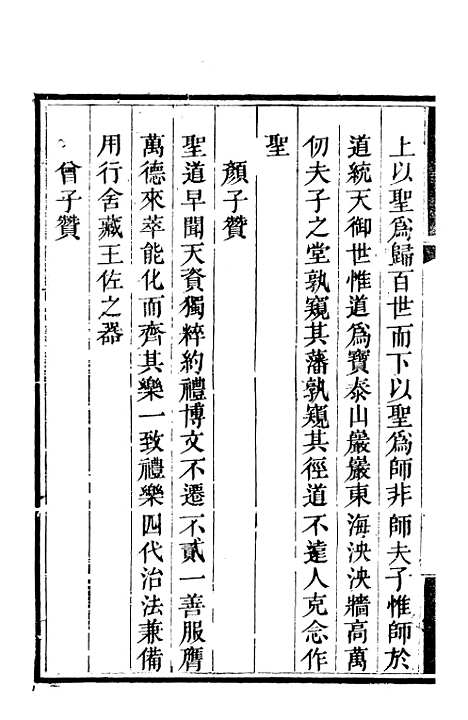 上以聖爲歸百世而下以聖爲師非師夫子惟師於
道統天御世惟道爲寶泰山巖巖東海泱泱牆高萬
仞夫子之堂孰窺其藩孰窺其徑道不遠人克念作
聖
顔子贊
聖道早聞天資獨粹約禮博文不遷不貳一善服膺
萬德來萃能化而齊其樂一致禮樂四代治法兼備
用行舍藏王佐之器
曾子贊